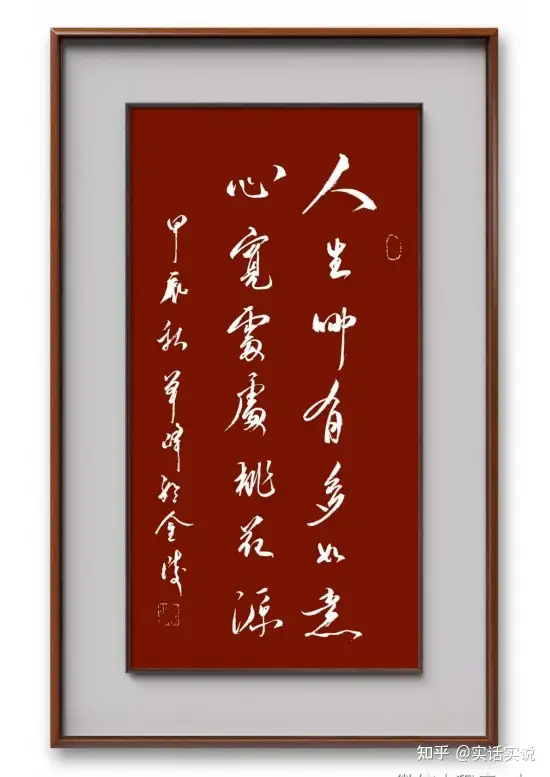 人生哪有多如意
心寬處處桃花源
甲辰秋華峰於金陵
知乎 @实话实说